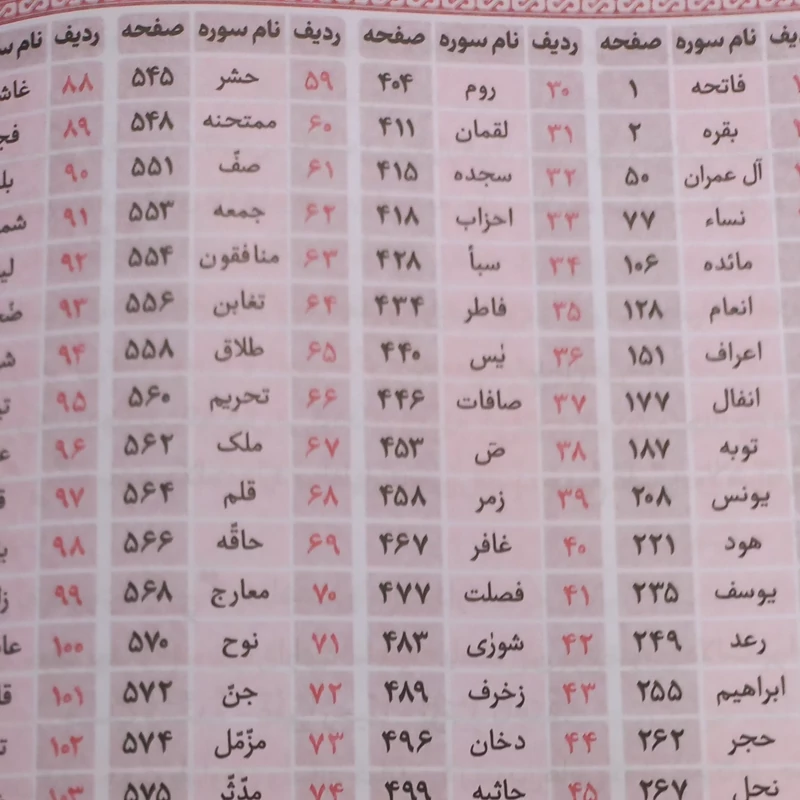 ردیف نام سوره صفحه ردیف نام سوره صفحه ردیف نام سوره صفحه ردیف
فاتحه ۱ ۳۰ روم ۴۰۴ ۵۹ حشر ۵۴۵ ۸۸
بقره ۲ ۳۱ لقمان ۴۱۱ ۶۰ ممتحنه ۵۴۸ ۸۹
آل عمران ۵۰ ۳۲ سجده ۴۱۵ ۶۱ صفّ ۵۵۱ ۹۰
نساء ۷۷ ۳۳ احزاب ۴۱۸ ۶۲ جمعه ۵۵۳ ۹۱
مائده ۱۰۶ ۳۴ سبأ ۴۲۸ ۶۳ منافقون ۵۵۴ ۹۲
انعام ۱۲۸ ۳۵ فاطر ۴۳۴ ۶۴ تغابن ۵۵۶ ۹۳
اعراف ۱۵۱ ۳۶ یٰس ۴۴۰ ۶۵ طلاق ۵۵۸ ۹۴
انفال ۱۷۷ ۳۷ صافات ۴۴۶ ۶۶ تحریم ۵۶۰ ۹۵
توبه ۱۸۷ ۳۸ صٓ ۴۵۳ ۶۷ ملک ۵۶۲ ۹۶
یونس ۲۰۸ ۳۹ زمر ۴۵۸ ۶۸ قلم ۵۶۴ ۹۷
هود ۲۲۱ ۴۰ غافر ۴۶۷ ۶۹ حاقّه ۵۶۶ ۹۸
یوسف ۲۳۵ ۴۱ فصلت ۴۷۷ ۷۰ معارج ۵۶۸ ۹۹
رعد ۲۴۹ ۴۲ شورٰی ۴۸۳ ۷۱ نوح ۵۷۰ ۱۰۰
ابراهیم ۲۵۵ ۴۳ زخرف ۴۸۹ ۷۲ جنّ ۵۷۲ ۱۰۱
حجر ۲۶۲ ۴۴ دخان ۴۹۶ ۷۳ مزّمّل ۵۷۴ ۱۰۲
نحل ۲۶۷ ۴۵ جاثیه ۴۹۹ ۷۴ مدّثّر ۵۷۵ ۱۰۳